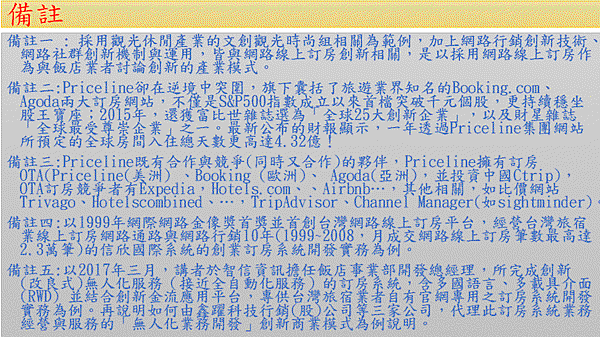 備註
備註一 : 採用觀光休閒產業的文創觀光時尚組相關為範例，加上網路行銷創新技術、
網路社群創新機制與運用，皆與網路線上訂房創新相關，是以採用網路線上訂房作
為與飯店業者討論創新的產業模式。
備註二:Priceline卻在逆境中突圍，旗下囊括了旅遊業界知名的Booking.com、
Agoda兩大訂房網站，不僅是S&P500指數成立以來首檔突破千元個股，更持續穩坐
股王寶座；2015年，還獲富比世雜誌選為「全球25大創新企業」，以及財星雜誌
「全球最受尊崇企業」之一。最新公布的財報顯示，一年透過Priceline集團網站
所預定的全球房間入住總天數更高達4.32億！
備註三:Priceline既有合作與競爭(同時又合作)的夥伴，Priceline擁有訂房
OTA(Priceline(美洲) 、Booking (歐洲)、 Agoda(亞洲)，並投資中國Ctrip)，
OTA訂房競爭者有Expedia，Hotels.com、、Airbnb…，其他相關，如比價網站
Trivago、Hotelscombined、…，TripAdvisor、Channel Manager(如sightminder)。
備註四:以1999年網際網路金像獎首獎並首創台灣網路線上訂房平台，經營台灣旅宿
業線上訂房網路通路與網路行銷10年(1999~2008，月成交網路線上訂房筆數最高達
2.3萬筆)的信欣國際系統的創業訂房系統開發實務為例。
備註五:以2017年三月，講者於智信資訊擔任飯店事業部開發總經理，所完成創新
(改良式)無人化服務 (接近全自動化服務) 的訂房系統，含多國語言、多載具介面
(RWD) 並結合創新金流應用平台，專供台灣旅宿業者自有官網專用之訂房系統開發
實務為例。再說明如何由鑫躍科技行銷(股)公司等三家公司，代理此訂房系統業務
經營與服務的「無人化業務開發」創新商業模式為例說明。